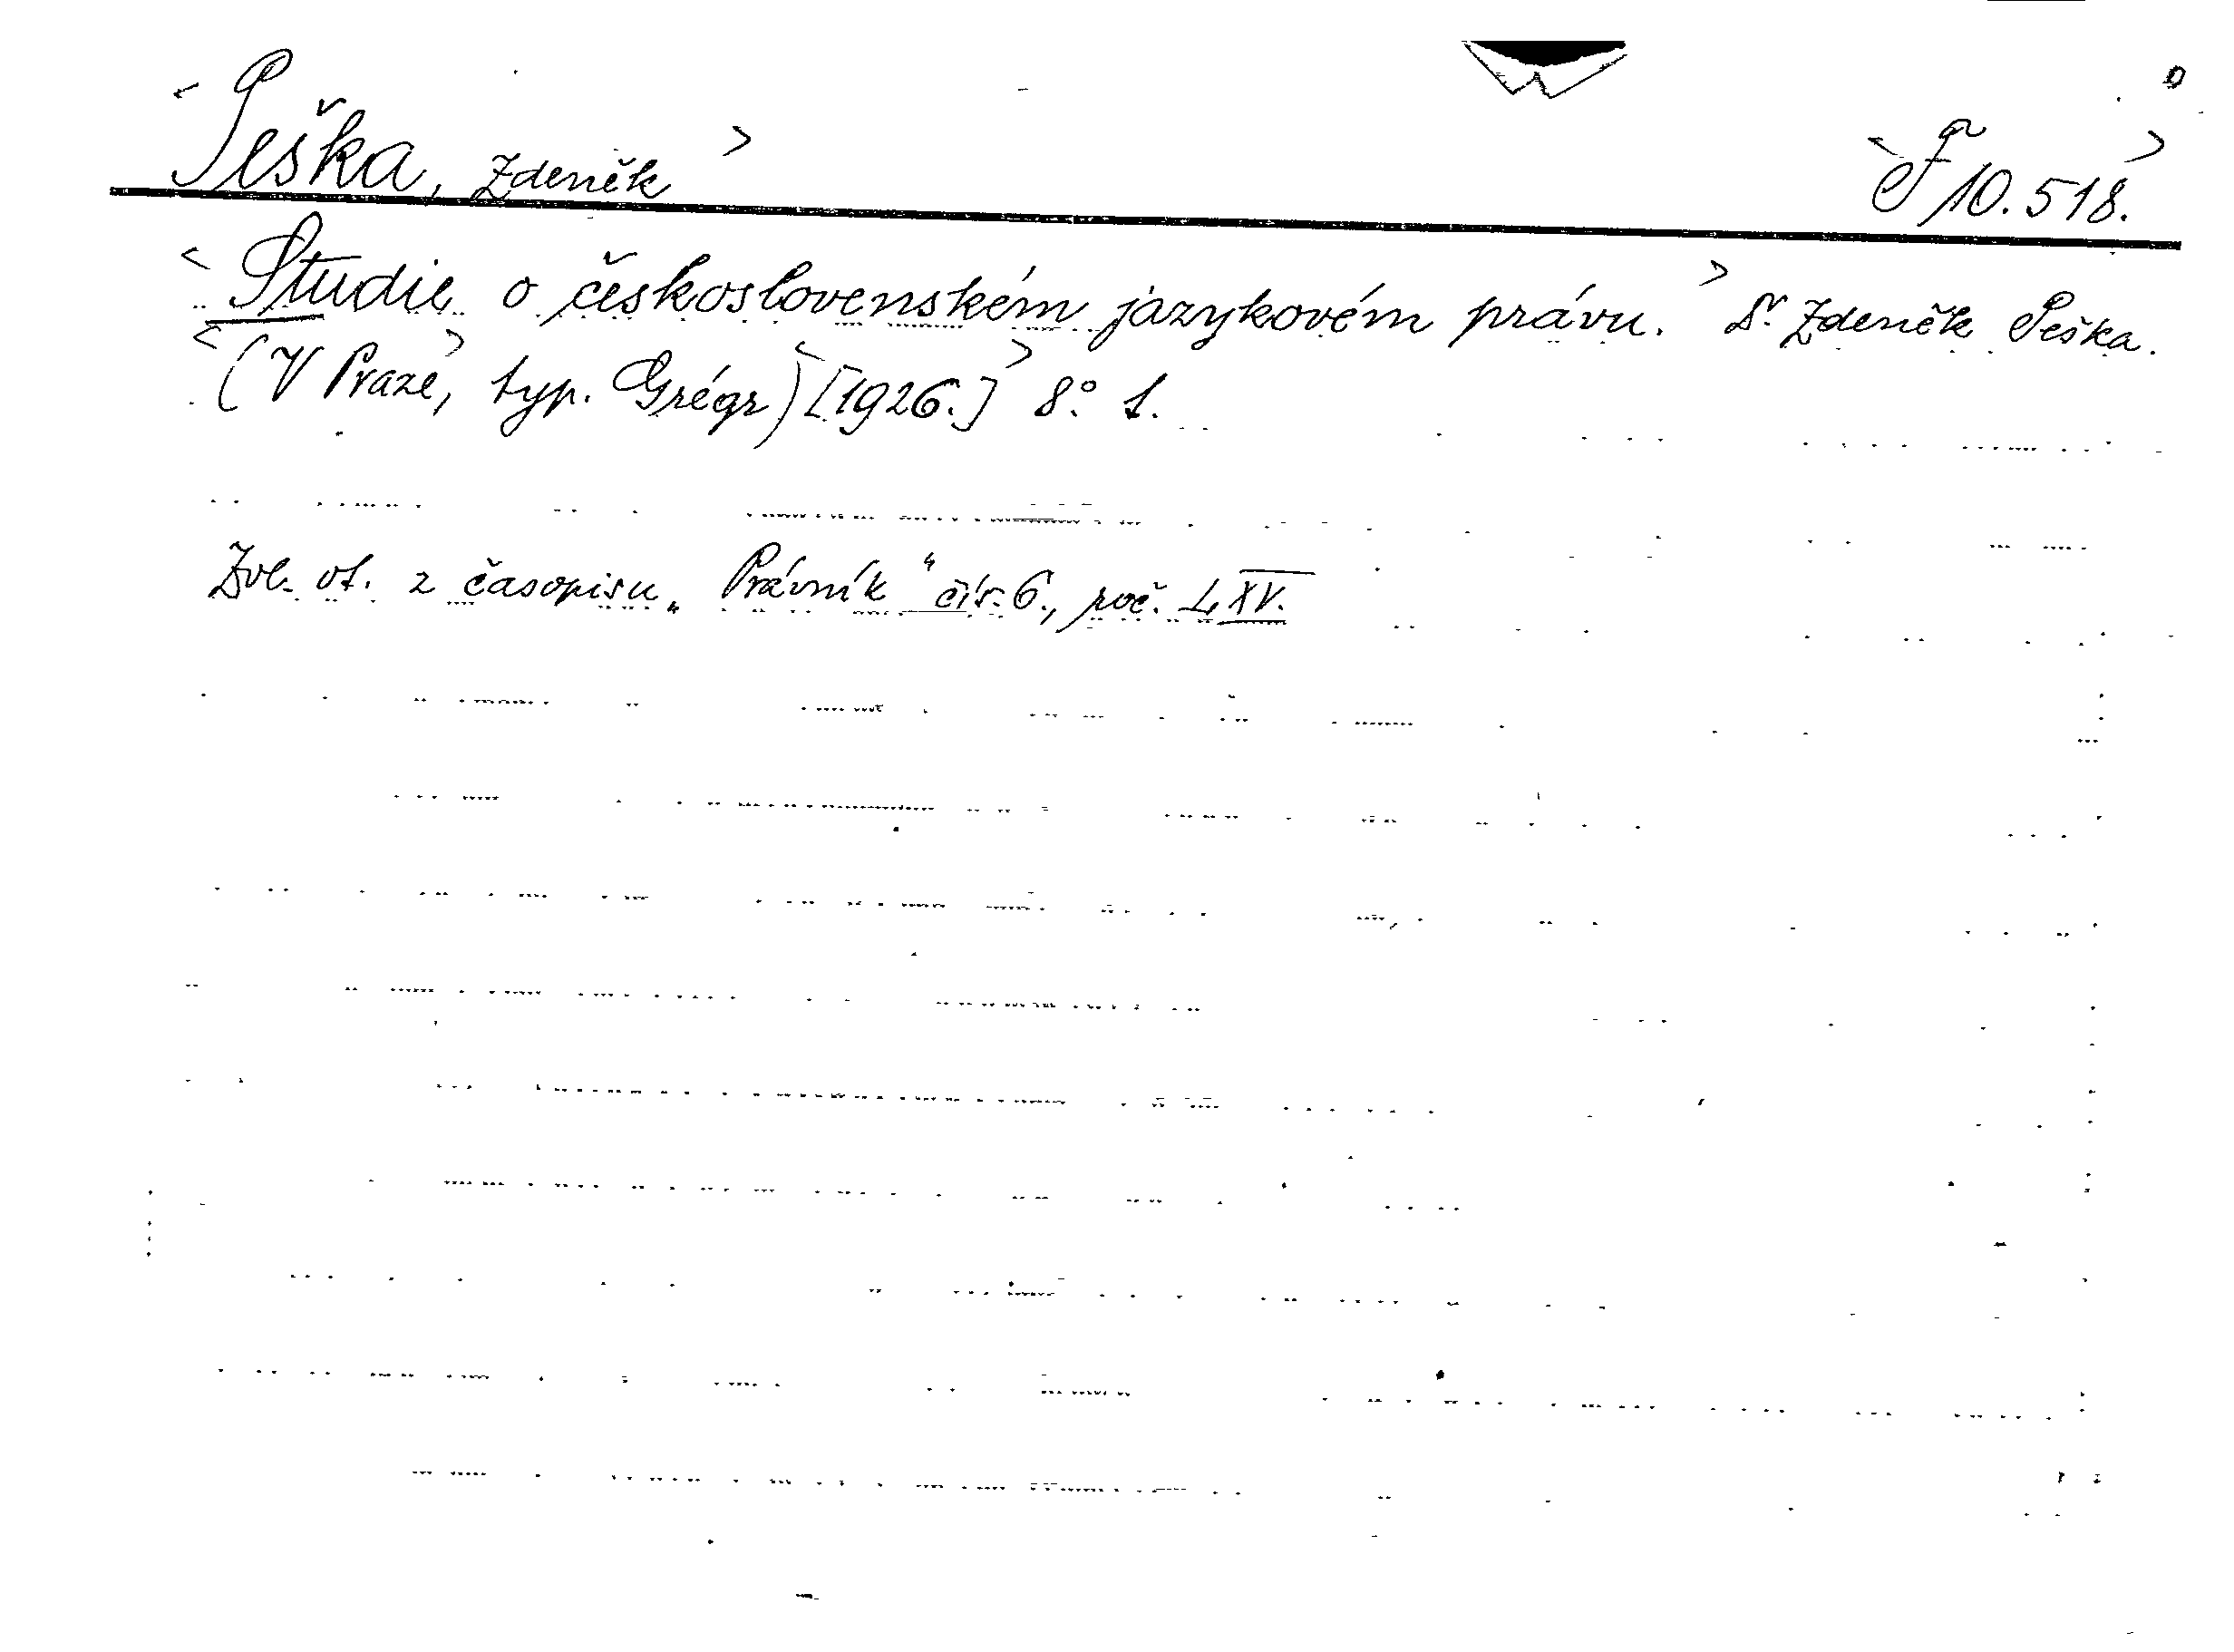 <Peška, Zdeněk> <F 10.518.>
<Studie o československém jazykovém právu.> Dr. Zdeněk Peška.
<(V Praze>, typ. Grégr) <[1926.]> 8.° 1.
Zvl. ot. z časopisu „Právník“ čís. 6., roč. LXV.